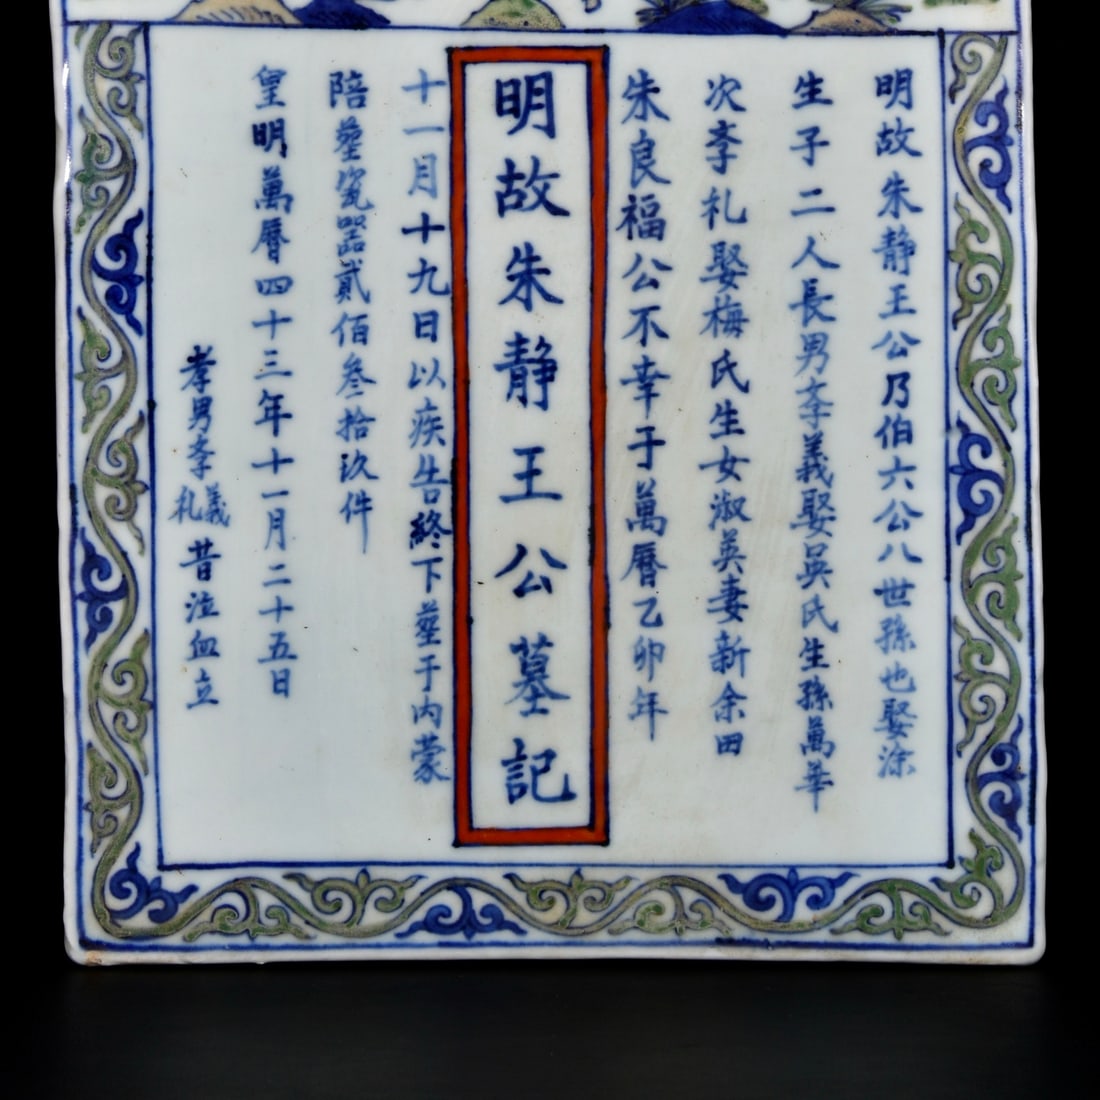 明故朱静王公乃伯六公八世孫也娶涂
生子二人長男李義娶吴氏生孫萬華
次李札娶梅氏生女淑英妻新余田
朱良福公不幸于萬曆乙卯年
明故朱静王公墓記
十一月十九日以疾告終下塟于内蒙
陪塟瓷器貳佰叁拾玖件
皇明萬曆四十三年十一月二十五日
孝男李義札昔泣血立